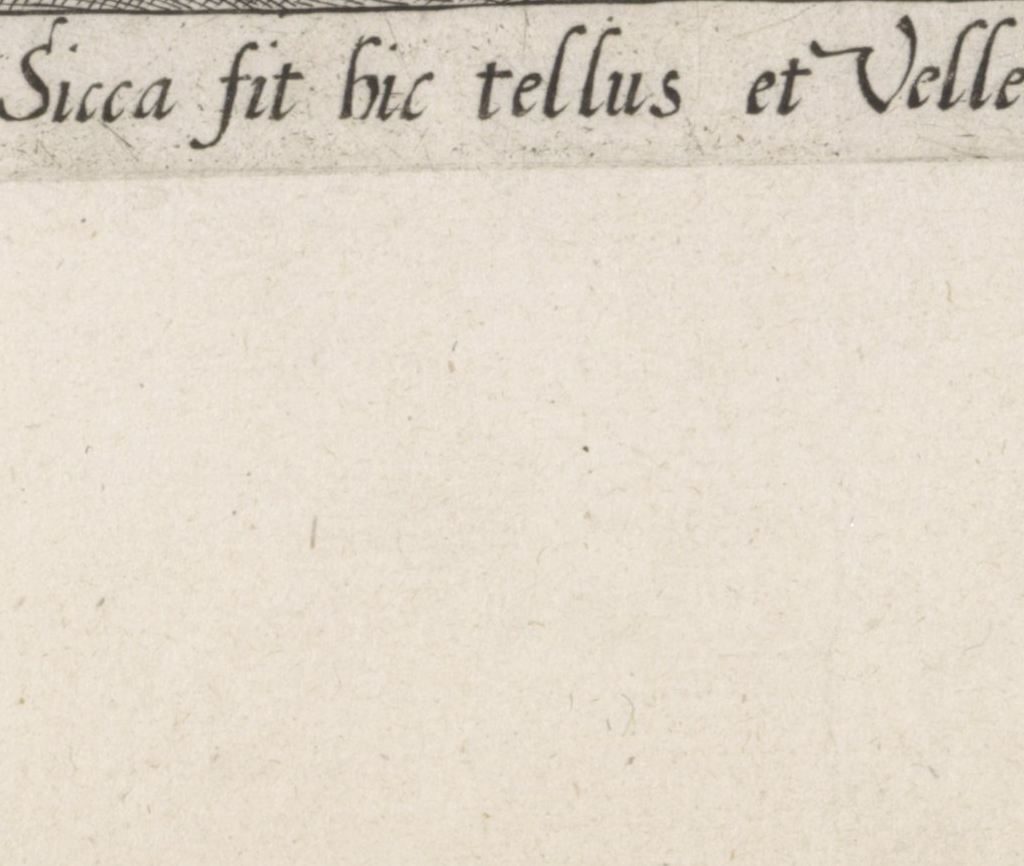 Sicca fit hic tellus et Velle